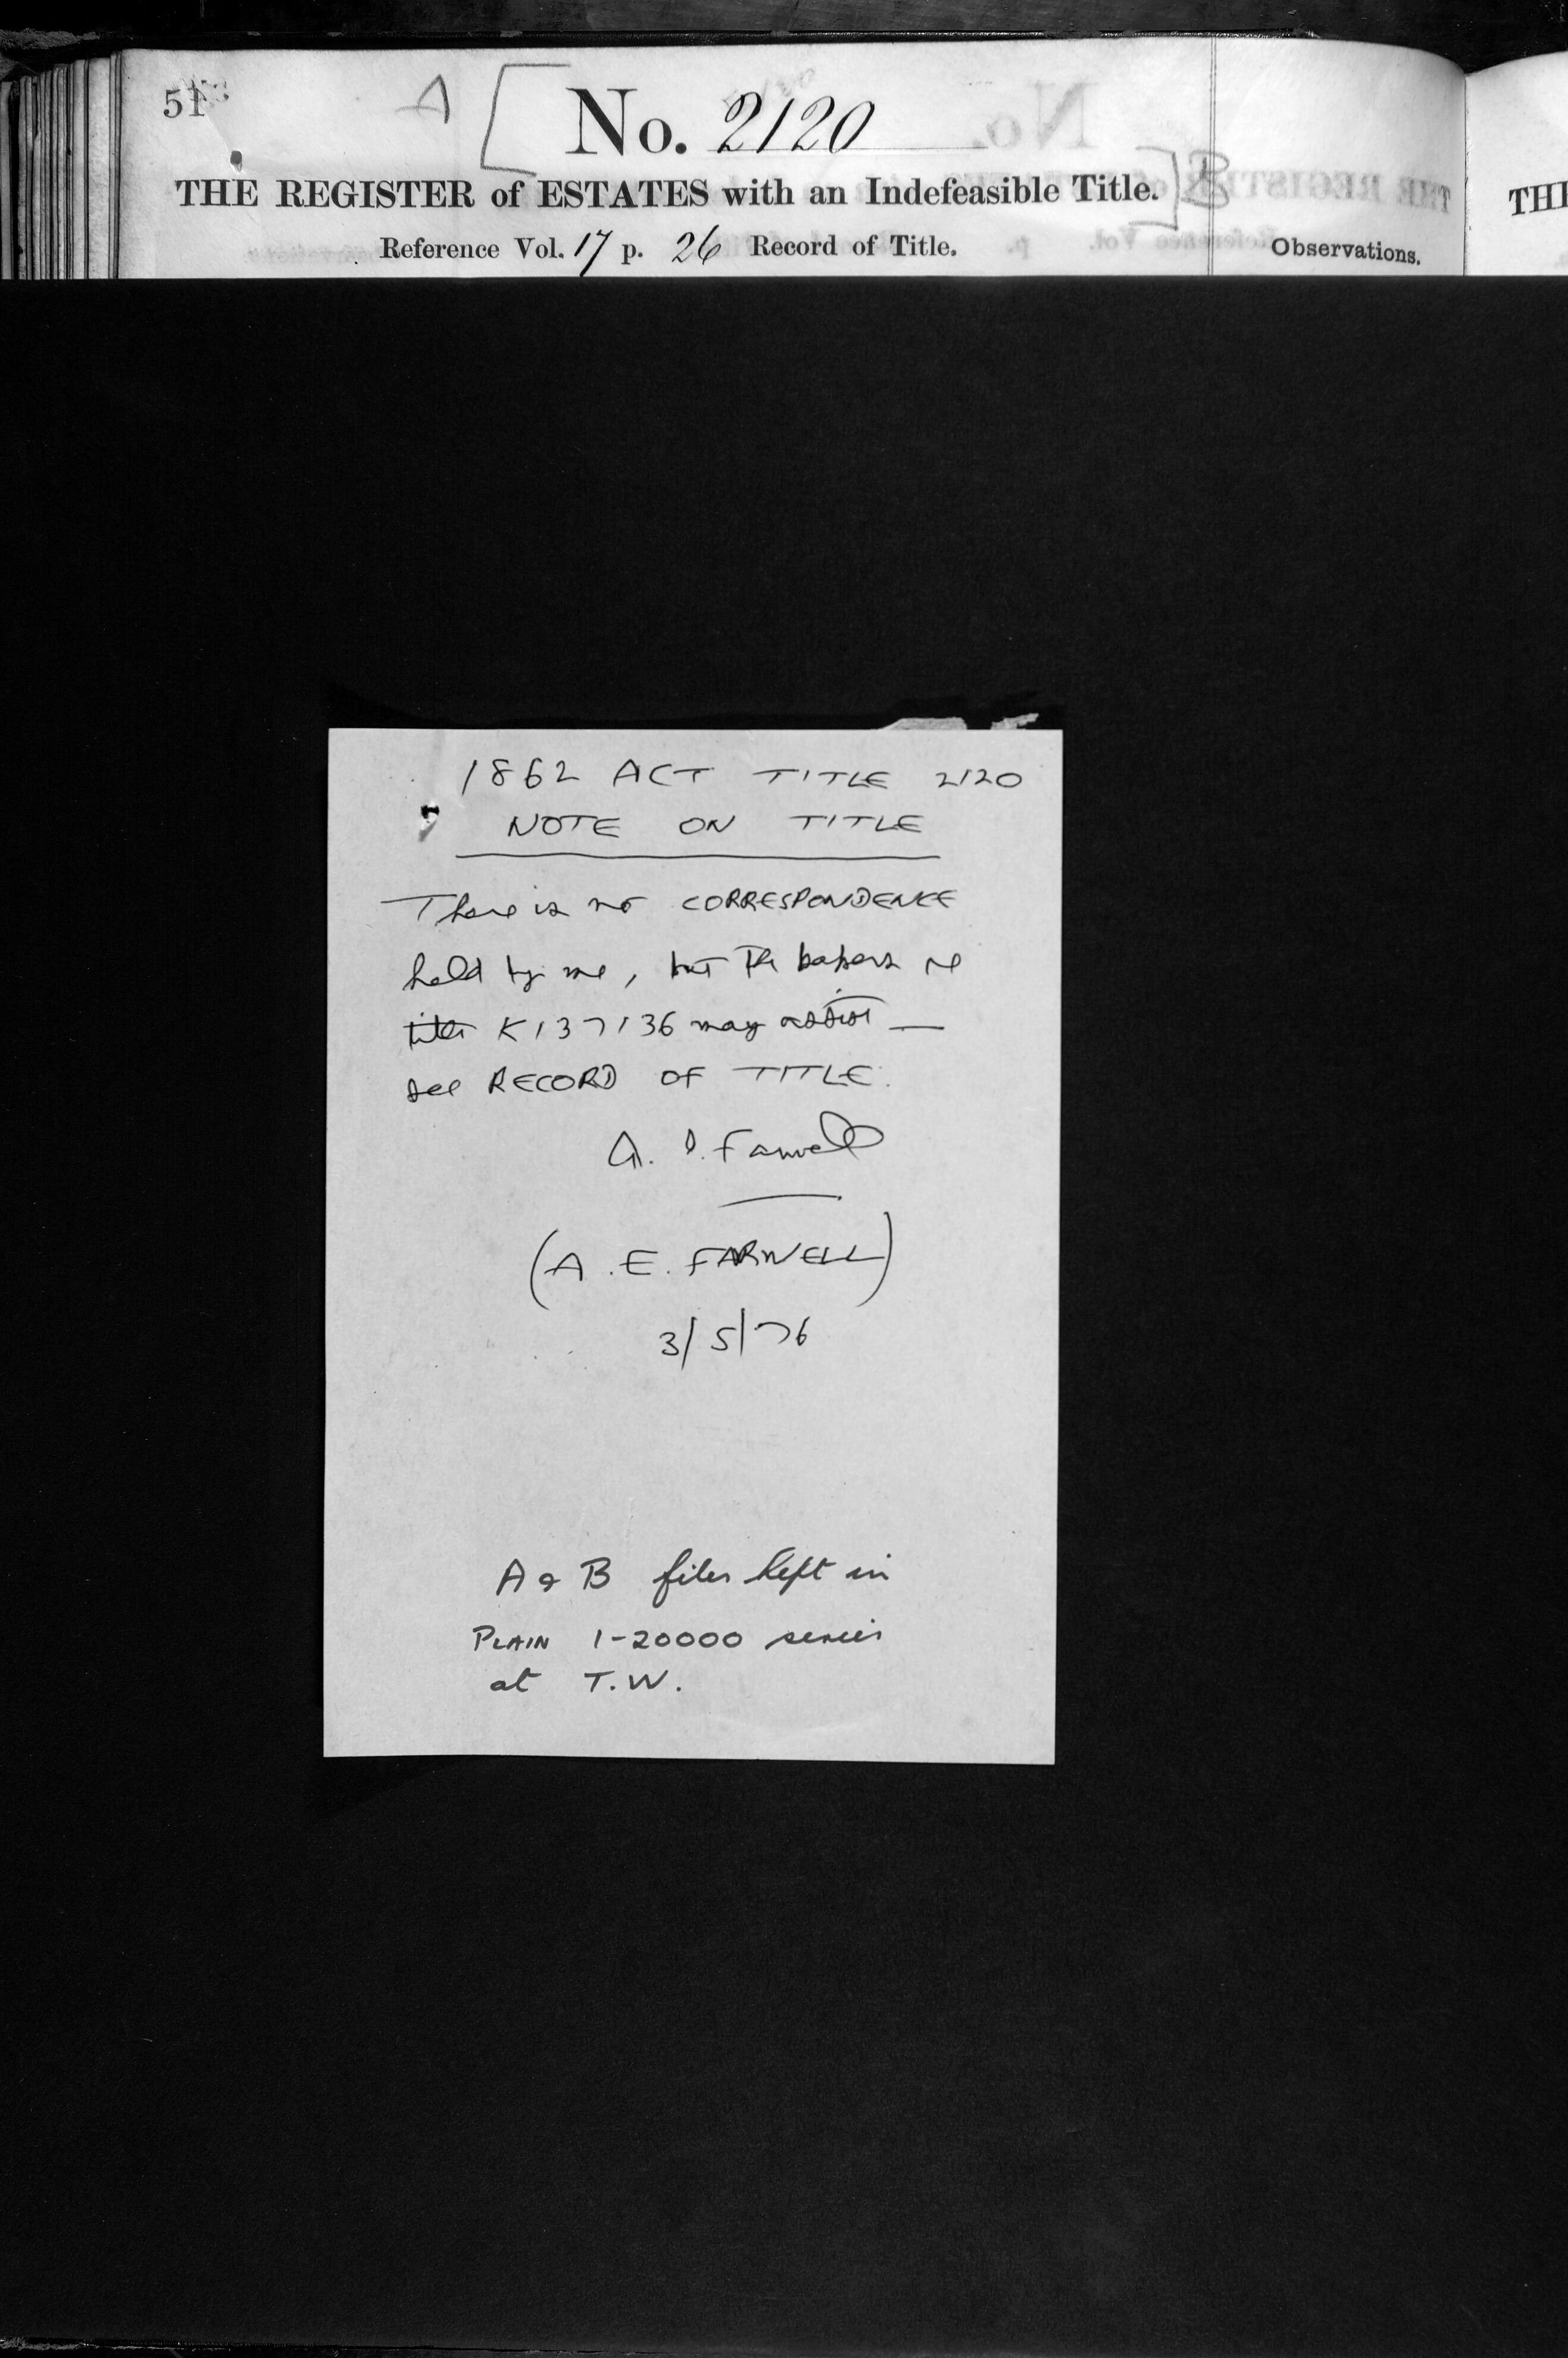 51
A [ No. 2120
THE REGISTER of ESTATES with an Indefeasible Title. ] B
Reference Vol. 17 p. 26 Record of Title.
Observations.
THE
1862 ACT TITLE 2120
NOTE ON TITLE
There is no CORRESPONDENCE
held by me, but the papers re
title K137136 may assist —
see RECORD OF TITLE.
A. E. Farwell
(A. E. FARWELL)
3/5/76
A & B files kept in
PLAIN 1-20000 series
at T.W.